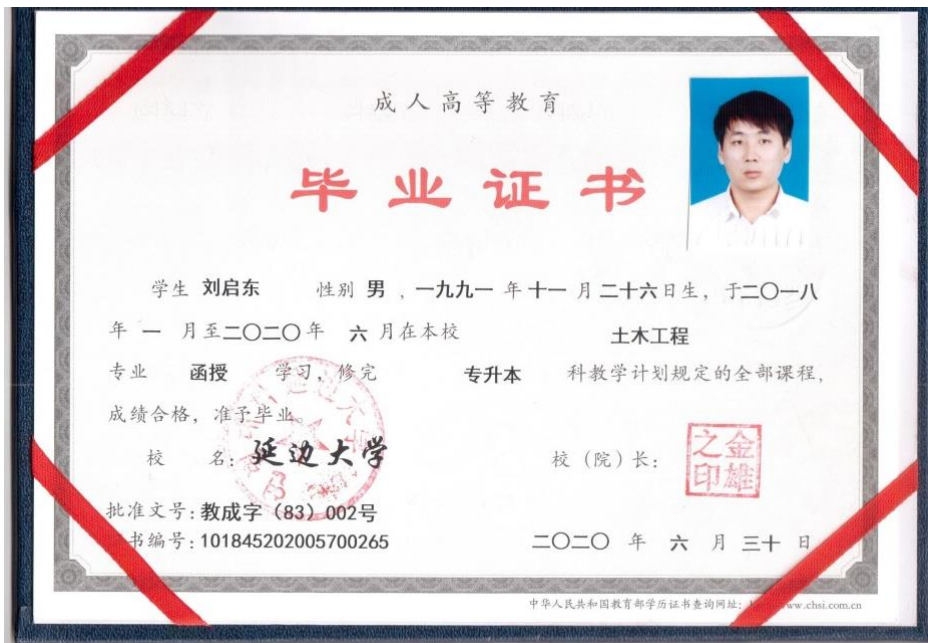 成人高等教育
毕业证书
学生 刘启东 性别 男 ，一九九一 年 十一 月 二十六日生，于二〇一八
年 一 月至二〇二〇年 六 月在本校 土木工程
专业 函授 学习，修完 专升本 科教学计划规定的全部课程，
成绩合格，准予毕业。
校 名：延边大学 校（院）长： 金雄之印
批准文号：教成字（83）002号
书编号：101845202005700265 二〇二〇 年 六 月 三十 日
中华人民共和国教育部学历证书查询网址： ww.chsi.com.cn